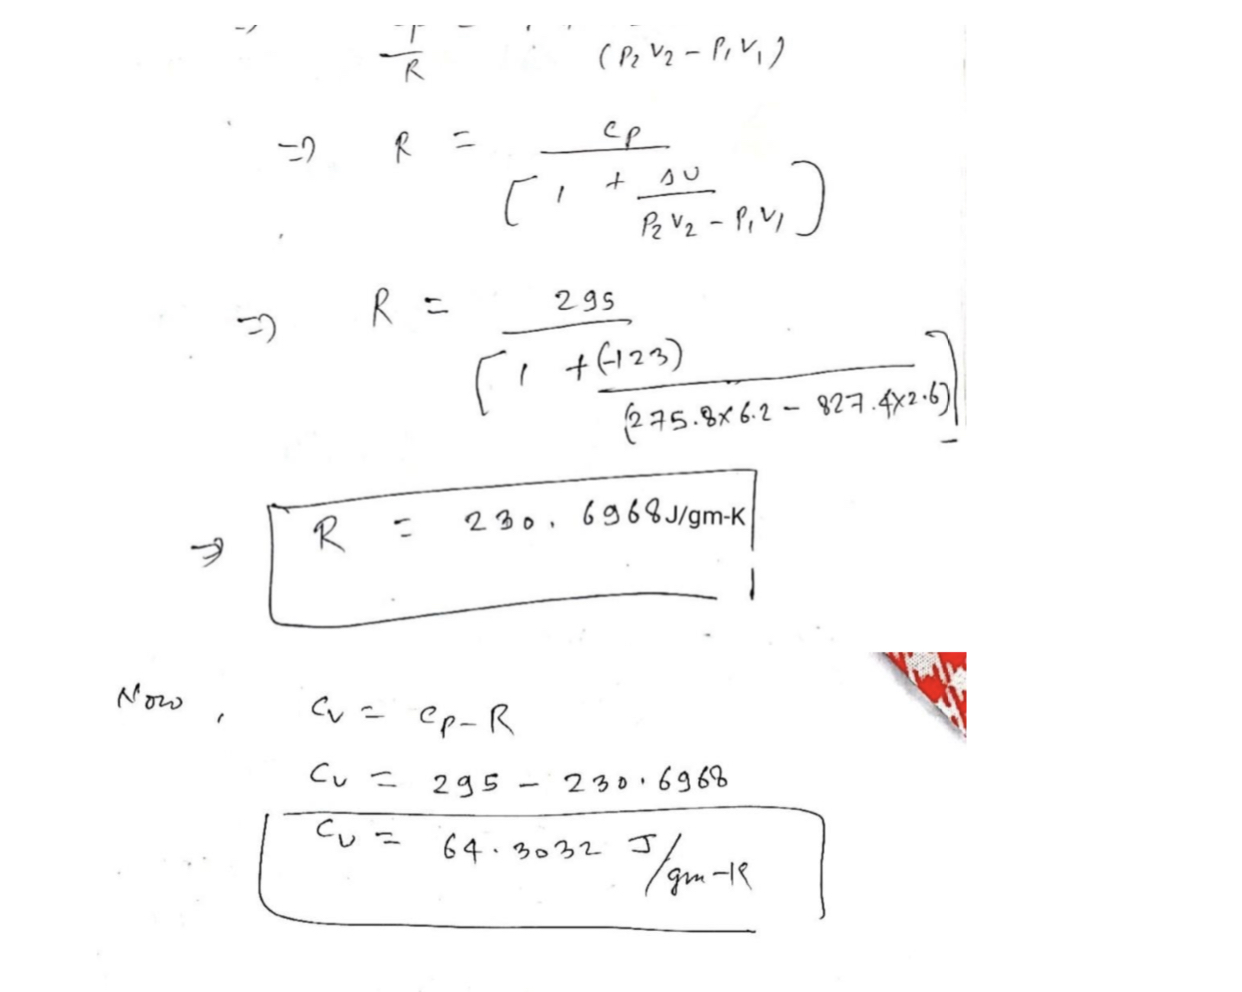 R (P₂V₂ - P₁V₁)
⇒ R = cp / [1 + ΔU / P₂V₂ - P₁V₁]
⇒ R = 295 / [1 + (-123) / (275.8×6.2 - 827.4×2.6)]
⇒ R = 230.6968 J/gm-K
Now, Cv = Cp - R
Cv = 295 - 230.6968
Cv = 64.3032 J/gm-K